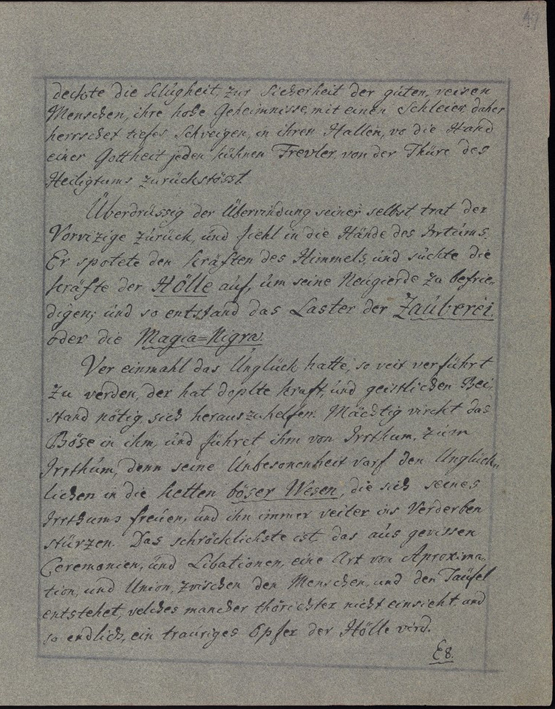 47
deckte die Klugheit zur Sicherheit der guten, weisen
Menschen, ihre hohe Geheimnisse, mit einen Schleier, daher
herrschet tiefes Schweigen, in ihren Hallen, wo die Hand
einer Gottheit jeden kühnen Frevler von der Thüre des
Heiligtums zurückstösst.
Überdrüssig der Überwindung seiner selbst trat der
Vorwizige zurück, und fiehl in die Hände des Irrtums.
Er spotete den Kräften des Himmels, und suchte die
Kräfte der Hölle auf, um seine Neugierde zu befrie-
digen; und so entstand das Laster der Zauberei
oder die Magia=Nigra.
Wer einmahl das Unglück hatte, so weit verführt
zu werden, der hat doplte Kraft, und geistlichen Bei-
stand nötig, sich herauszuhelfen. Mächtig wirckt das
Böse in ihm, und führet ihm von Irrthum, zum
Irrthum, denn seine Unbesonenheit warf den Unglück-
lichen in die Ketten böser Wesen, die sich seines
Irrthums freuen, und ihn immer weiter ins Verderben
stürzen. Das schröcklichste ist, das aus gewissen
Ceremonien, und Libationen, eine Art von Aproxima
tion, und Union, zwischen den Menschen, und den Taüfel
entstehet, welches mancher thörichter nicht einsieht, und
so endlich, ein trauriges Opfer der Hölle wird.
Es.